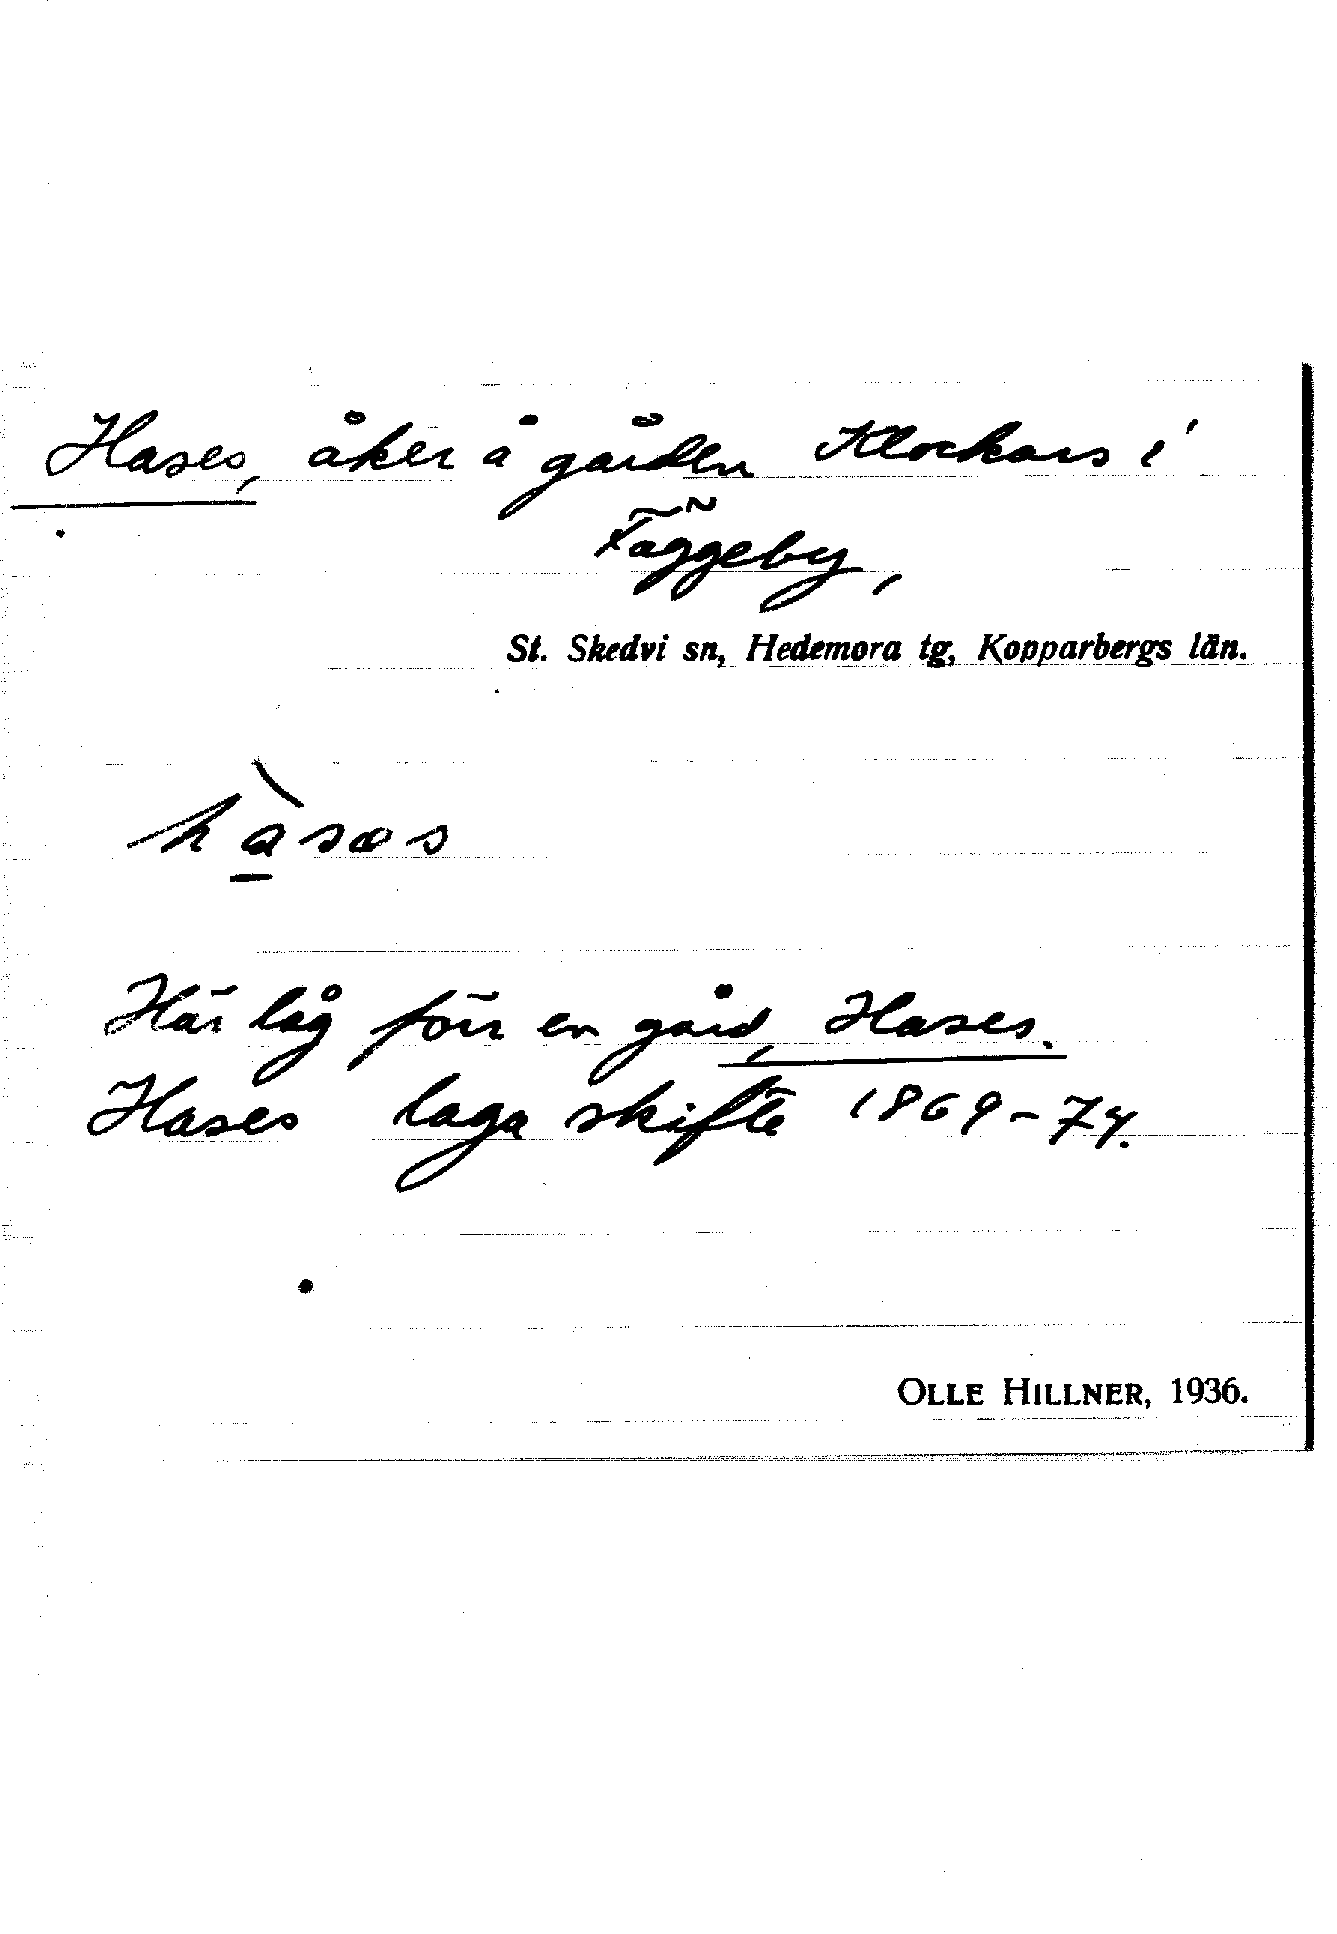 Hases, åker å gården Klockars i
Fäggeby,
St. Skedvi sn, Hedemora tg, Kopparbergs län.
hàsæs
Här låg förr en gård, Hases.
Hases laga skifte 1869-74.
OLLE HILLNER, 1936.